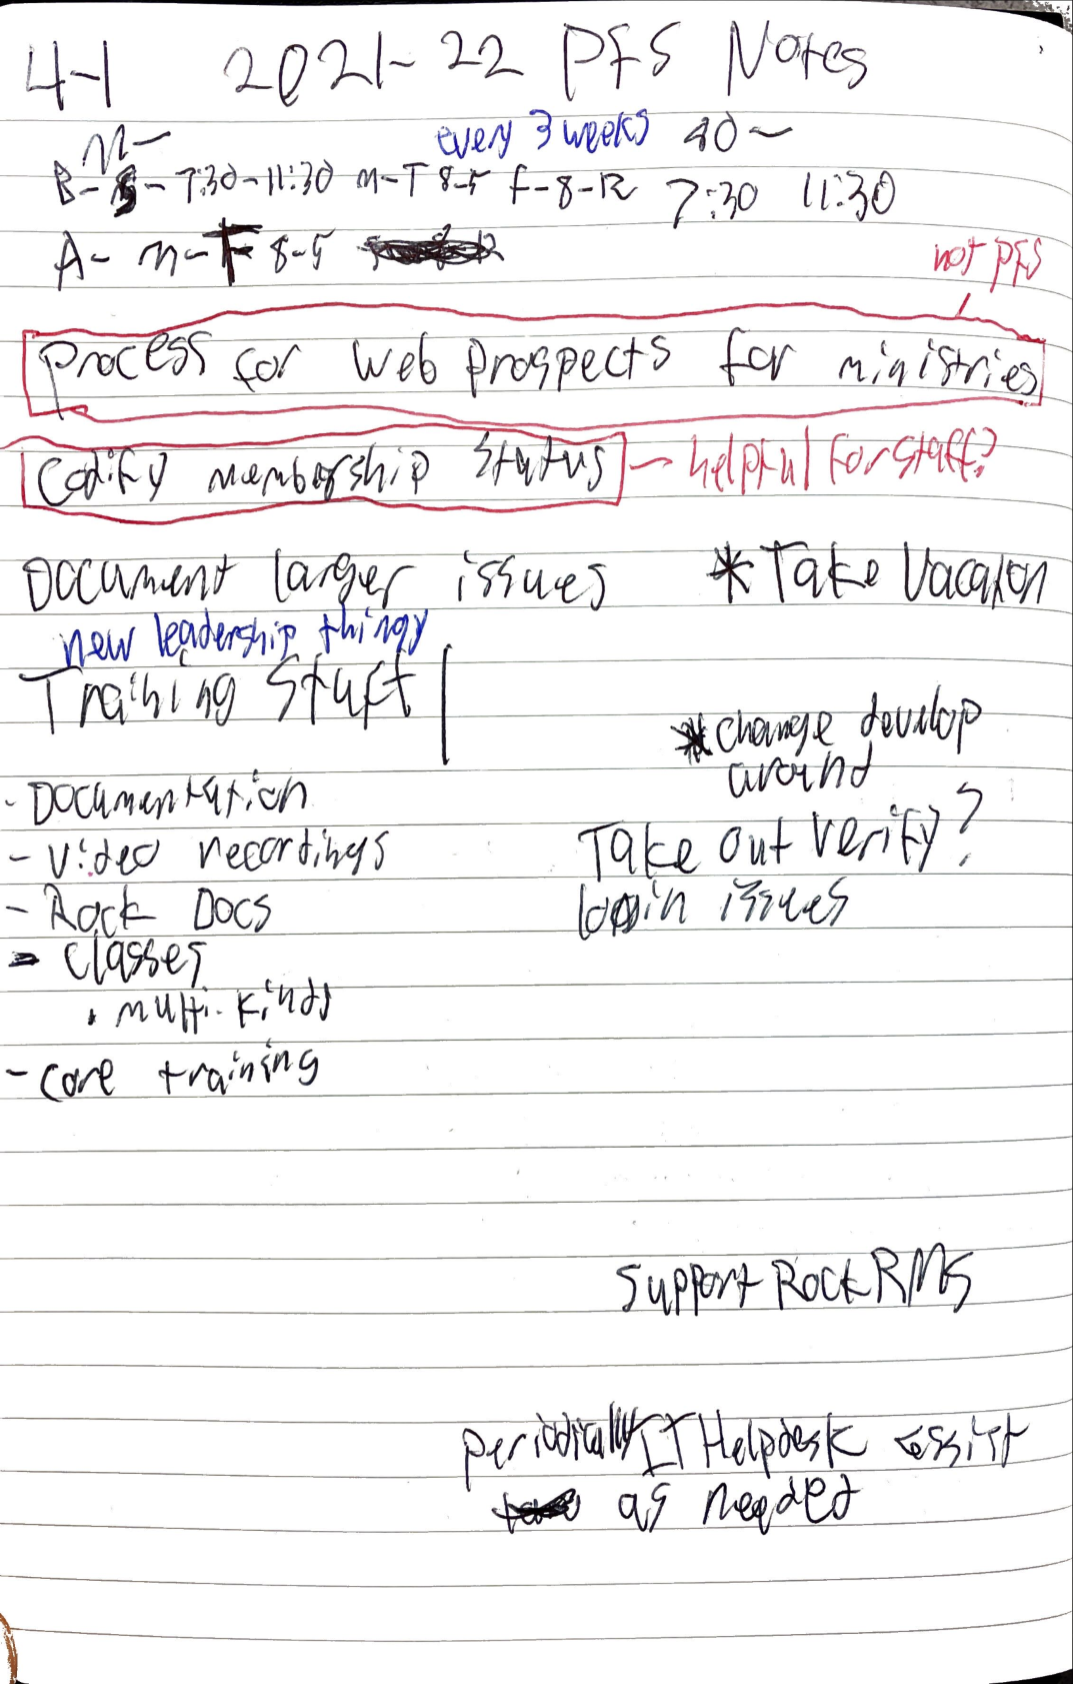 4-1 2021-22 PFS Notes
M- every 3 weeks 40~
B- S - 7:30-11:30 M-T 8-5 F-8-12 7:30 11:30
A- M-F 8-5
not PFS
Process for web prospects for ministries
Codify membership status - helpful for staff?
Document larger issues * Take Vacation
new leadership thingy
Training Stuff
* change develop
around
- Documentation
- Video recordings
Take out verify?
- Rock Docs
login issues
- classes
• multi-kinds
- core training
Support RockRMS
periodically IT Helpdesk assist
as needed